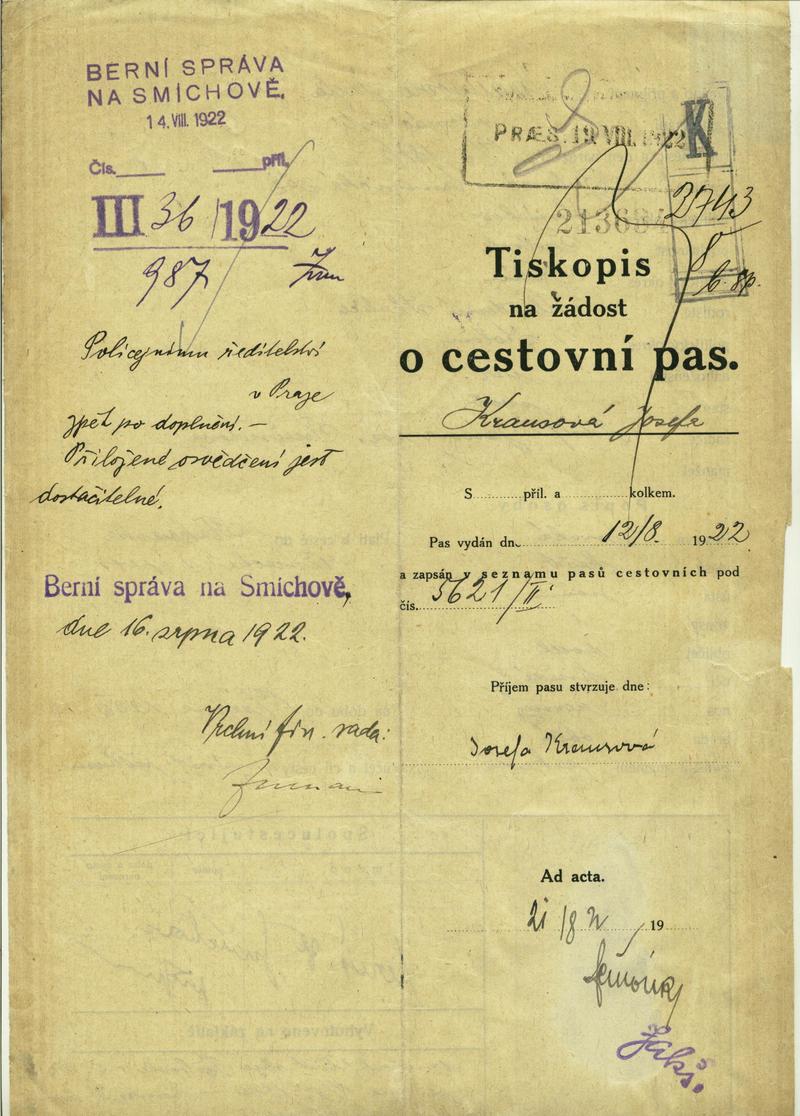 BERNÍ SPRÁVA
NA SMÍCHOVĚ.
14. VIII. 1922
Čís. příl.
III 36/1922
987
Policejnímu ředitelství
v Praze
zpět po doplnění. –
Přiložené osvědčení jest
dostačitelné.
Berní správa na Smíchově,
dne 16. srpna 1922.
Vrchní fin. rada:
PRÆS. 19. VIII. 1922
K
2743
Tiskopis
na žádost
o cestovní pas.
Krausová Josefa
S příl. a kolkem.
Pas vydán dn. 12/8. 1922
a zapsán v seznamu pasů cestovních pod
čís. 5621/II
Příjem pasu stvrzuje dne:
Josefa Krausová
Ad acta.
21/8 22 19
Spolucestující
Vyhotoveno na základě